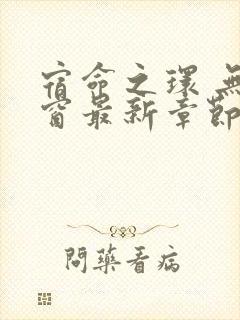 宿命之環 無
窗最新章節
問藥看病